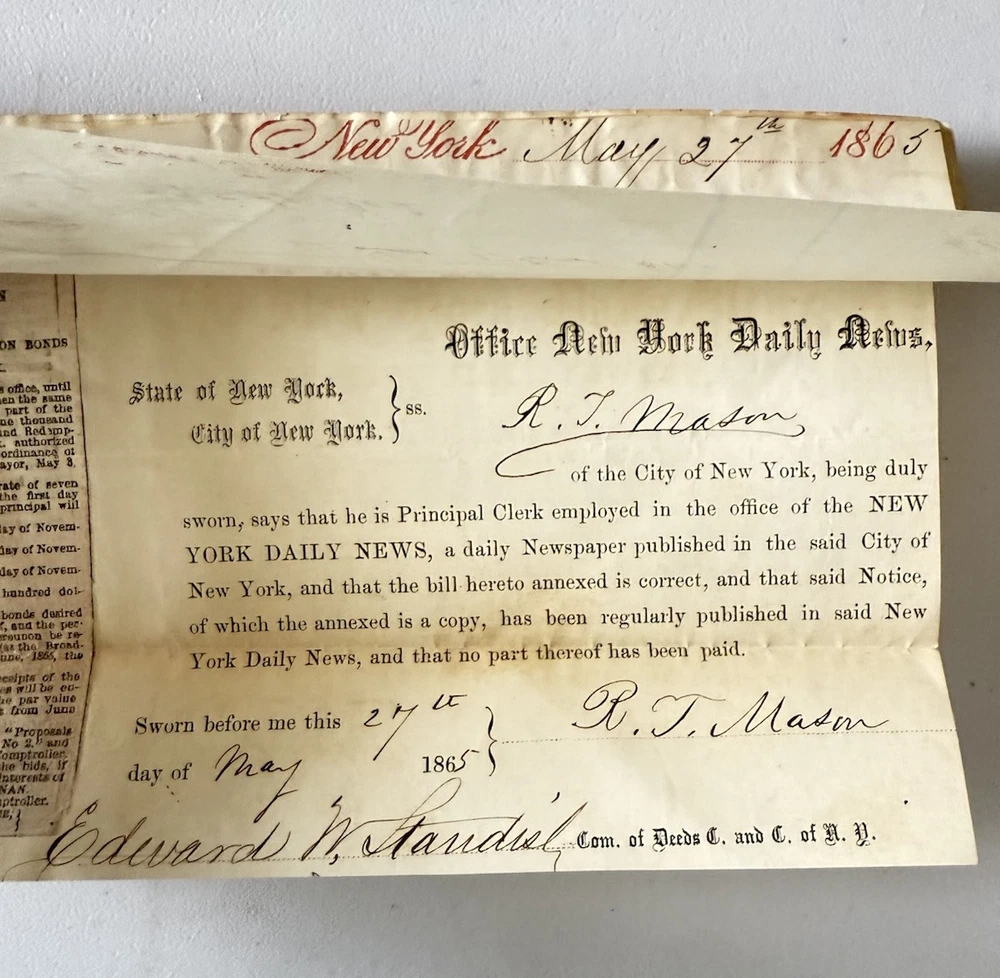 New York May 27th 1865
N
ON BONDS
s office, until
en the same
part of the
ne thousand
nd Redemp-
authorized
ordinance of
ayor, May 3,
rate of seven
the first day
principal will
day of Novem-
day of Novem-
day of Novem-
hundred dol-
bonds desired
f, and the per-
ereupon be re-
at the Broad-
une, 1865, the
eceipts of the
es will be en-
he par value
t from June
"Proposals
No 2." and
omptroller.
he bids, if
nterests of
NAN.
mptroller.
Office New York Daily News,
State of New York,
City of New York. } ss.
R. T. Mason
of the City of New York, being duly
sworn, says that he is Principal Clerk employed in the office of the NEW
YORK DAILY NEWS, a daily Newspaper published in the said City of
New York, and that the bill hereto annexed is correct, and that said Notice,
of which the annexed is a copy, has been regularly published in said New
York Daily News, and that no part thereof has been paid.
Sworn before me this 27th
day of May 1865
R. T. Mason
Edward W. Standish Com. of Deeds C. and C. of N. Y.